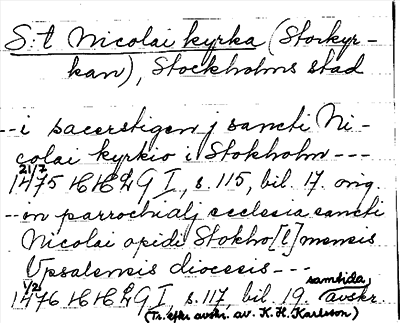 S:t Nicolai kyrka (Storkyr-
kan), Stockholms stad
--i sacerstigen j sancti Ni-
colai kyrkio i Stokholm ---
21/3
1475 HH G I, s. 115, bil. 17. orig.
--en parrochialj ecclesia sancti
Nicolai opidi Stokho[l]mensis
Vpsalensis diocesis ---
samtida
1476 HH G I, s. 117, bil. 19. avskr.
(Tr. efter avskr. av. K. H. Karlsson)